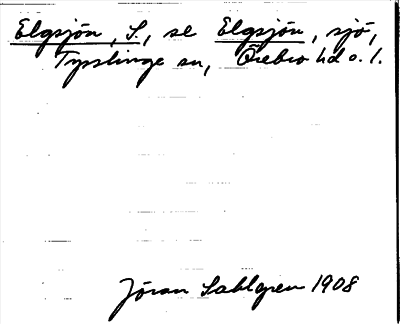 Elgsjön, S., se Elgsjön, sjö,
Tysslinge sn, Örebro hd o. l.
Jöran Sahlgren 1908